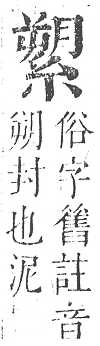 俗字舊註音
朔封也泥